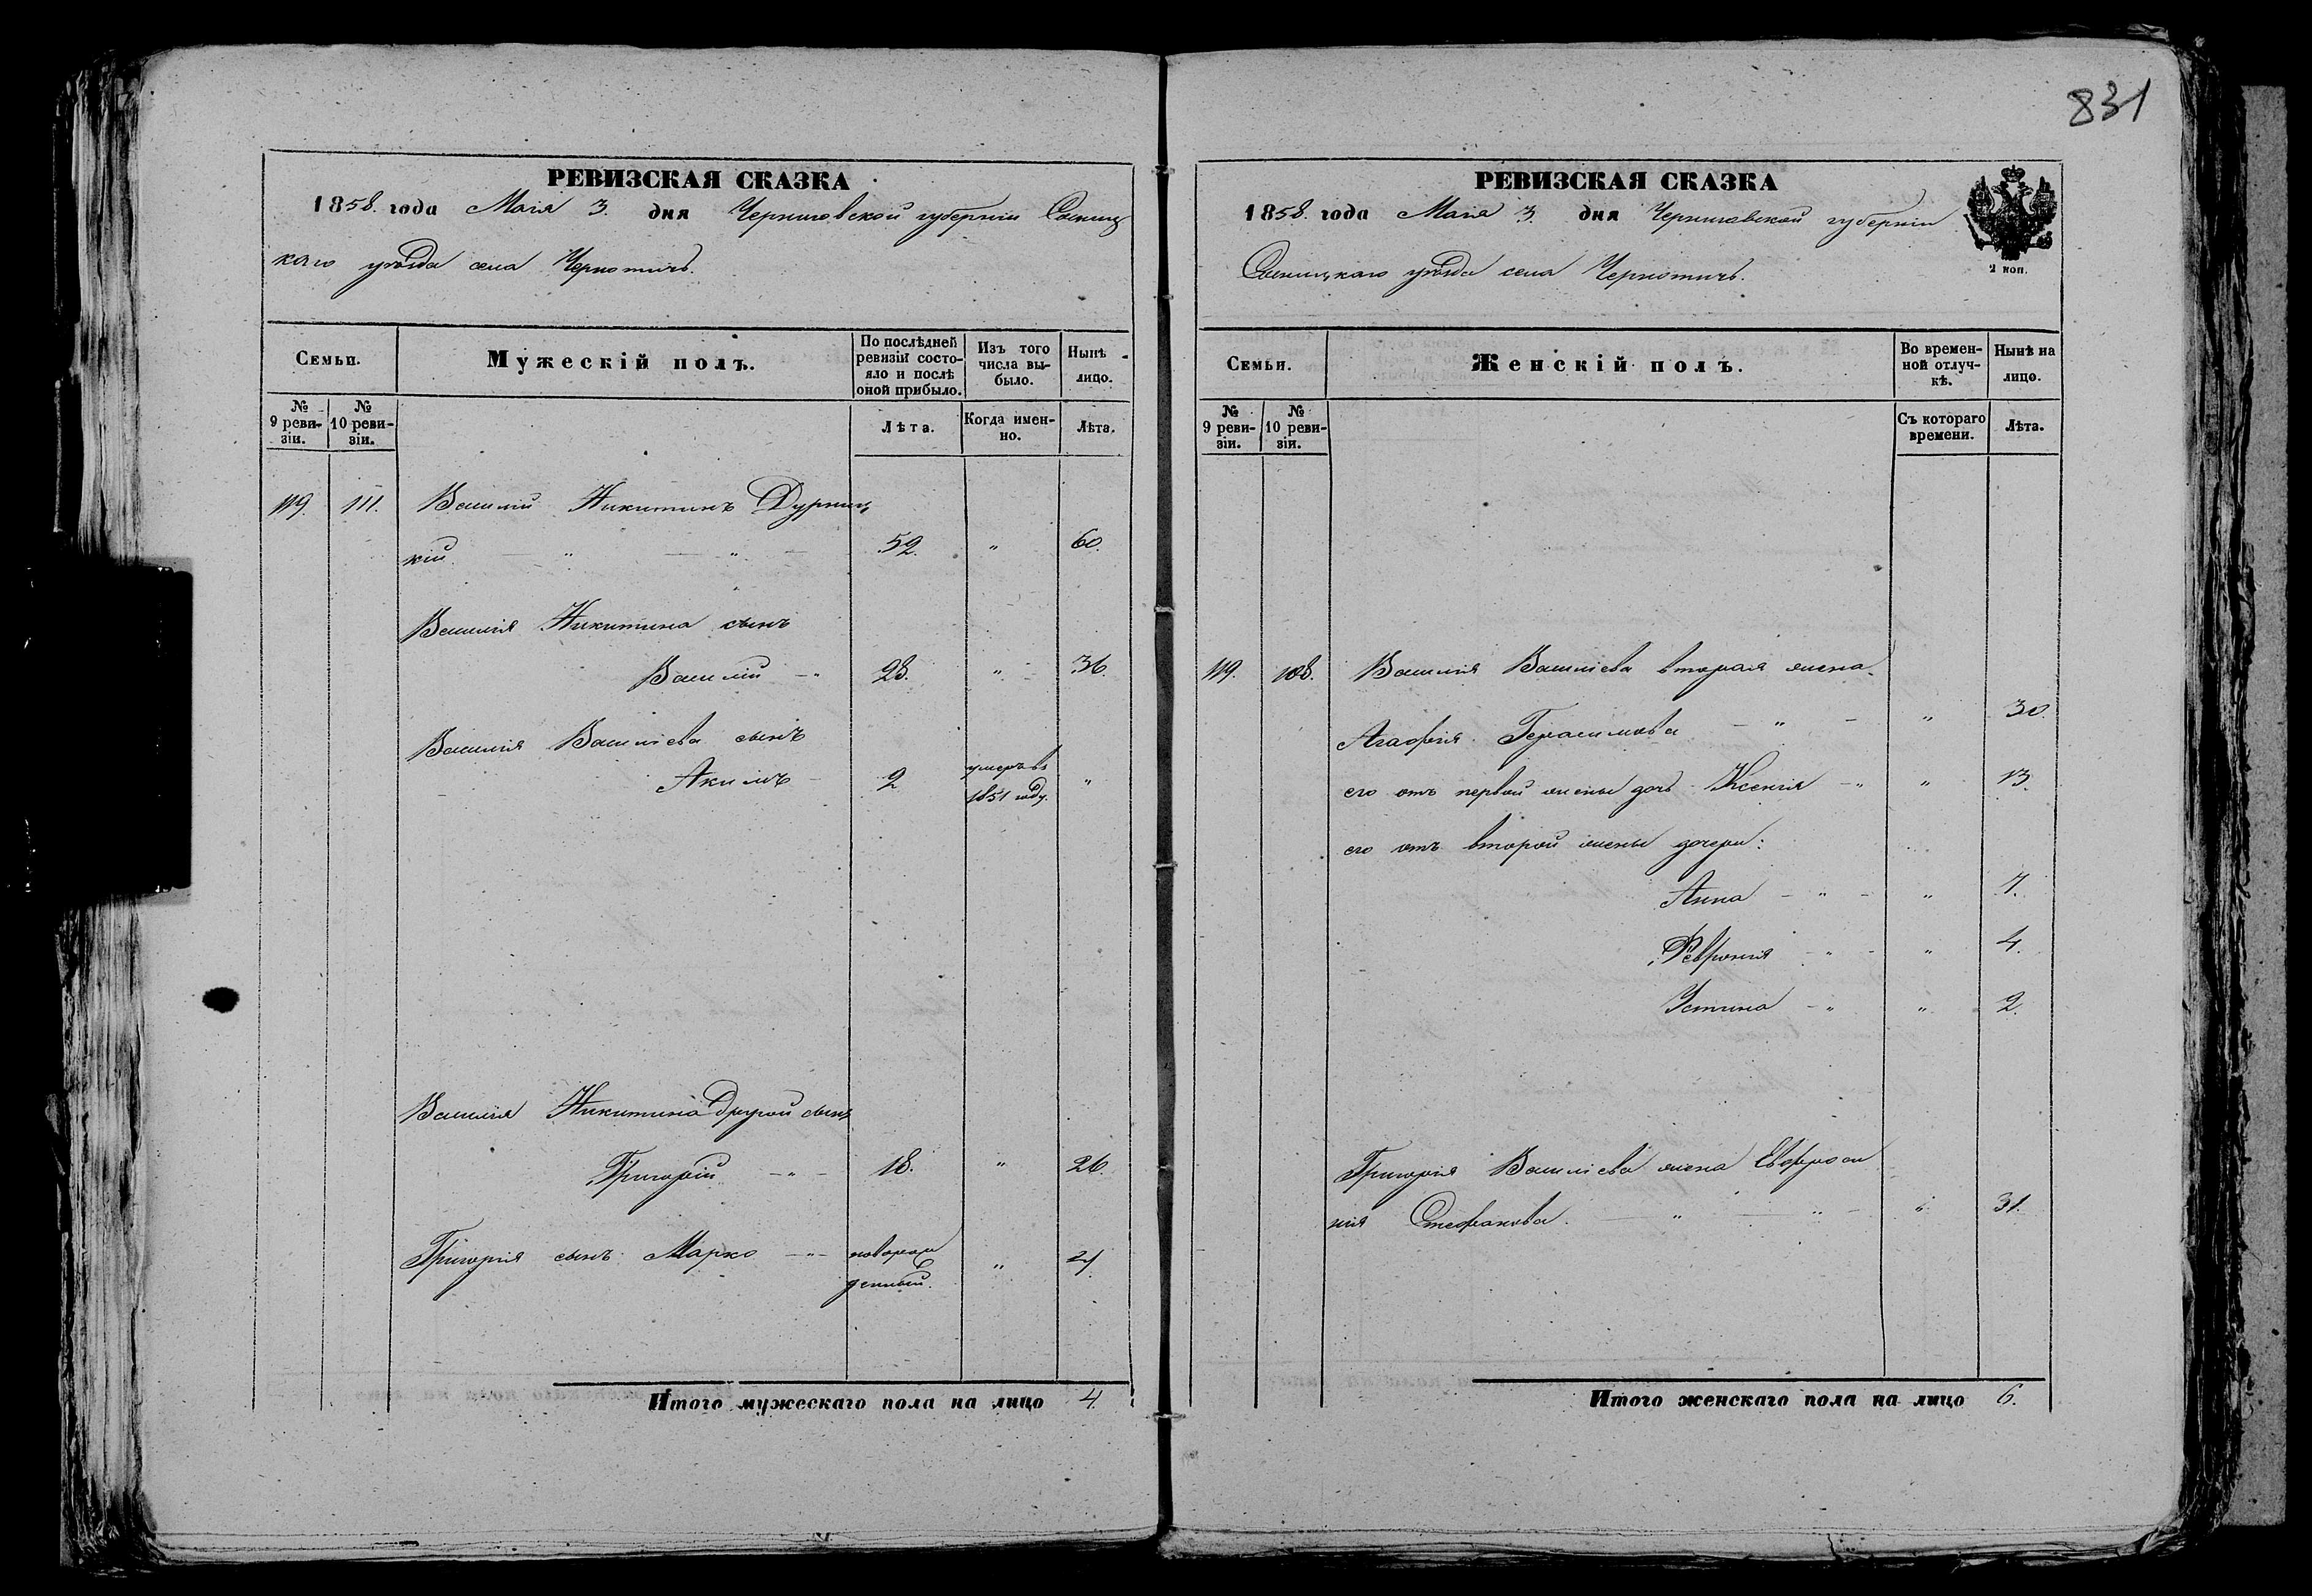 831
РЕВИЗСКАЯ СКАЗКА
1858. года Маія 3. дня Черниговской губерніи Сосниц
каго уѣзда села Чернотичъ.
Семьи.
Мужескій полъ.
По послѣдней ревизіи состояло и послѣ оной прибыло.
Изъ того числа выбыло.
Нынѣ лицо.
№ 9 ревизіи.
№ 10 ревизіи.
Лѣта.
Когда именно.
Лѣта.
119. 111. Василій Никитинъ Дурниц
кій. 52. " 60.
Василія Никитина сынъ
Василій 28. " 36.
Василія Васильева сынъ
Акимъ 2 умеръ въ "
1851 году.
Василія Никитина другой сынъ
Григорій 18. " 26.
Григорія сынъ Марко новорож
денный. "
Итого мужескаго пола на лицо 4.
РЕВИЗСКАЯ СКАЗКА
1858. года Маія 3. дня Черниговской губерніи
Сосницкаго уѣзда села Чернотичъ.
2 коп.
Семьи.
Женскій полъ.
Во временной отлучкѣ.
Нынѣ на лицо.
№ 9 ревизіи.
№ 10 ревизіи.
Съ котораго времени.
Лѣта.
119. Василія Васильева вторая жена
Агафія Герасимова " 30.
его отъ первой жены дочь Ксенія " 13.
его отъ второй жены дочери:
Анна " 7.
Февронія " 4.
Устина " 2.
Григорія Васильева жена Евфроси
нія Стефанова. " 31.
Итого женскаго пола на лицо 6.